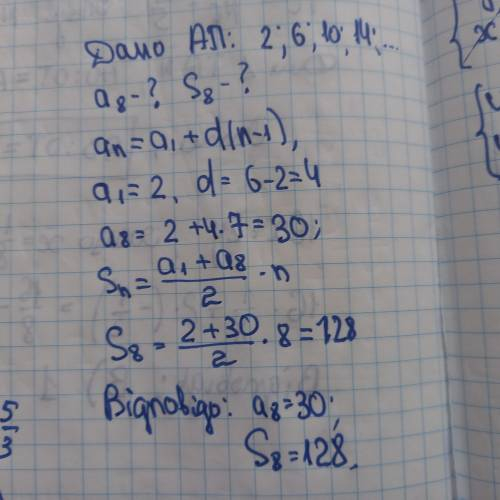 Дано АП: 2; 6; 10; 14; ...
a₈ - ? S₈ - ?
aₙ = a₁ + d(n-1),
a₁ = 2, d = 6-2=4
a₈ = 2 + 4·7 = 30;
Sₙ = (a₁ + a₈)/2 · n
S₈ = (2 + 30)/2 · 8 = 128
Відповідь: a₈ = 30;
S₈ = 128.
5/3